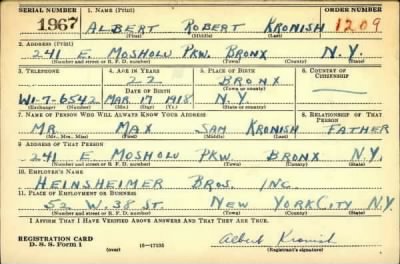 SERIAL NUMBER 1. NAME (Print) ORDER NUMBER
1967 ALBERT ROBERT KRONISH 1209
(First) (Middle) (Last)
2. ADDRESS (Print)
241 E. MOSHOLU PKW. BRONX N.Y.
(Number and street or R. F. D. number) (Town) (County) (State)
3. TELEPHONE 4. AGE IN YEARS 5. PLACE OF BIRTH 6. COUNTRY OF CITIZENSHIP
22 BRONX
DATE OF BIRTH (Town or county)
WI-7-6542 MAR. 17 1918 N.Y.
(Exchange) (Number) (Mo.) (Day) (Yr.) (State or country)
7. NAME OF PERSON WHO WILL ALWAYS KNOW YOUR ADDRESS 8. RELATIONSHIP OF THAT PERSON
MR. MAX SAM KRONISH FATHER
(Mr., Mrs., Miss) (First) (Middle) (Last)
9. ADDRESS OF THAT PERSON
241 E. MOSHOLU PKW. BRONX N.Y.
(Number and street or R. F. D. number) (Town) (County) (State)
10. EMPLOYER'S NAME
HEINSHEIMER BROS. INC.
11. PLACE OF EMPLOYMENT OR BUSINESS
52 W. 38 ST. NEW YORK CITY N.Y.
(Number and street or R. F. D. number) (Town) (County) (State)
I AFFIRM THAT I HAVE VERIFIED ABOVE ANSWERS AND THAT THEY ARE TRUE.
REGISTRATION CARD
D. S. S. Form 1 (over) 16—17105 Albert Kronish
(Registrant's signature)